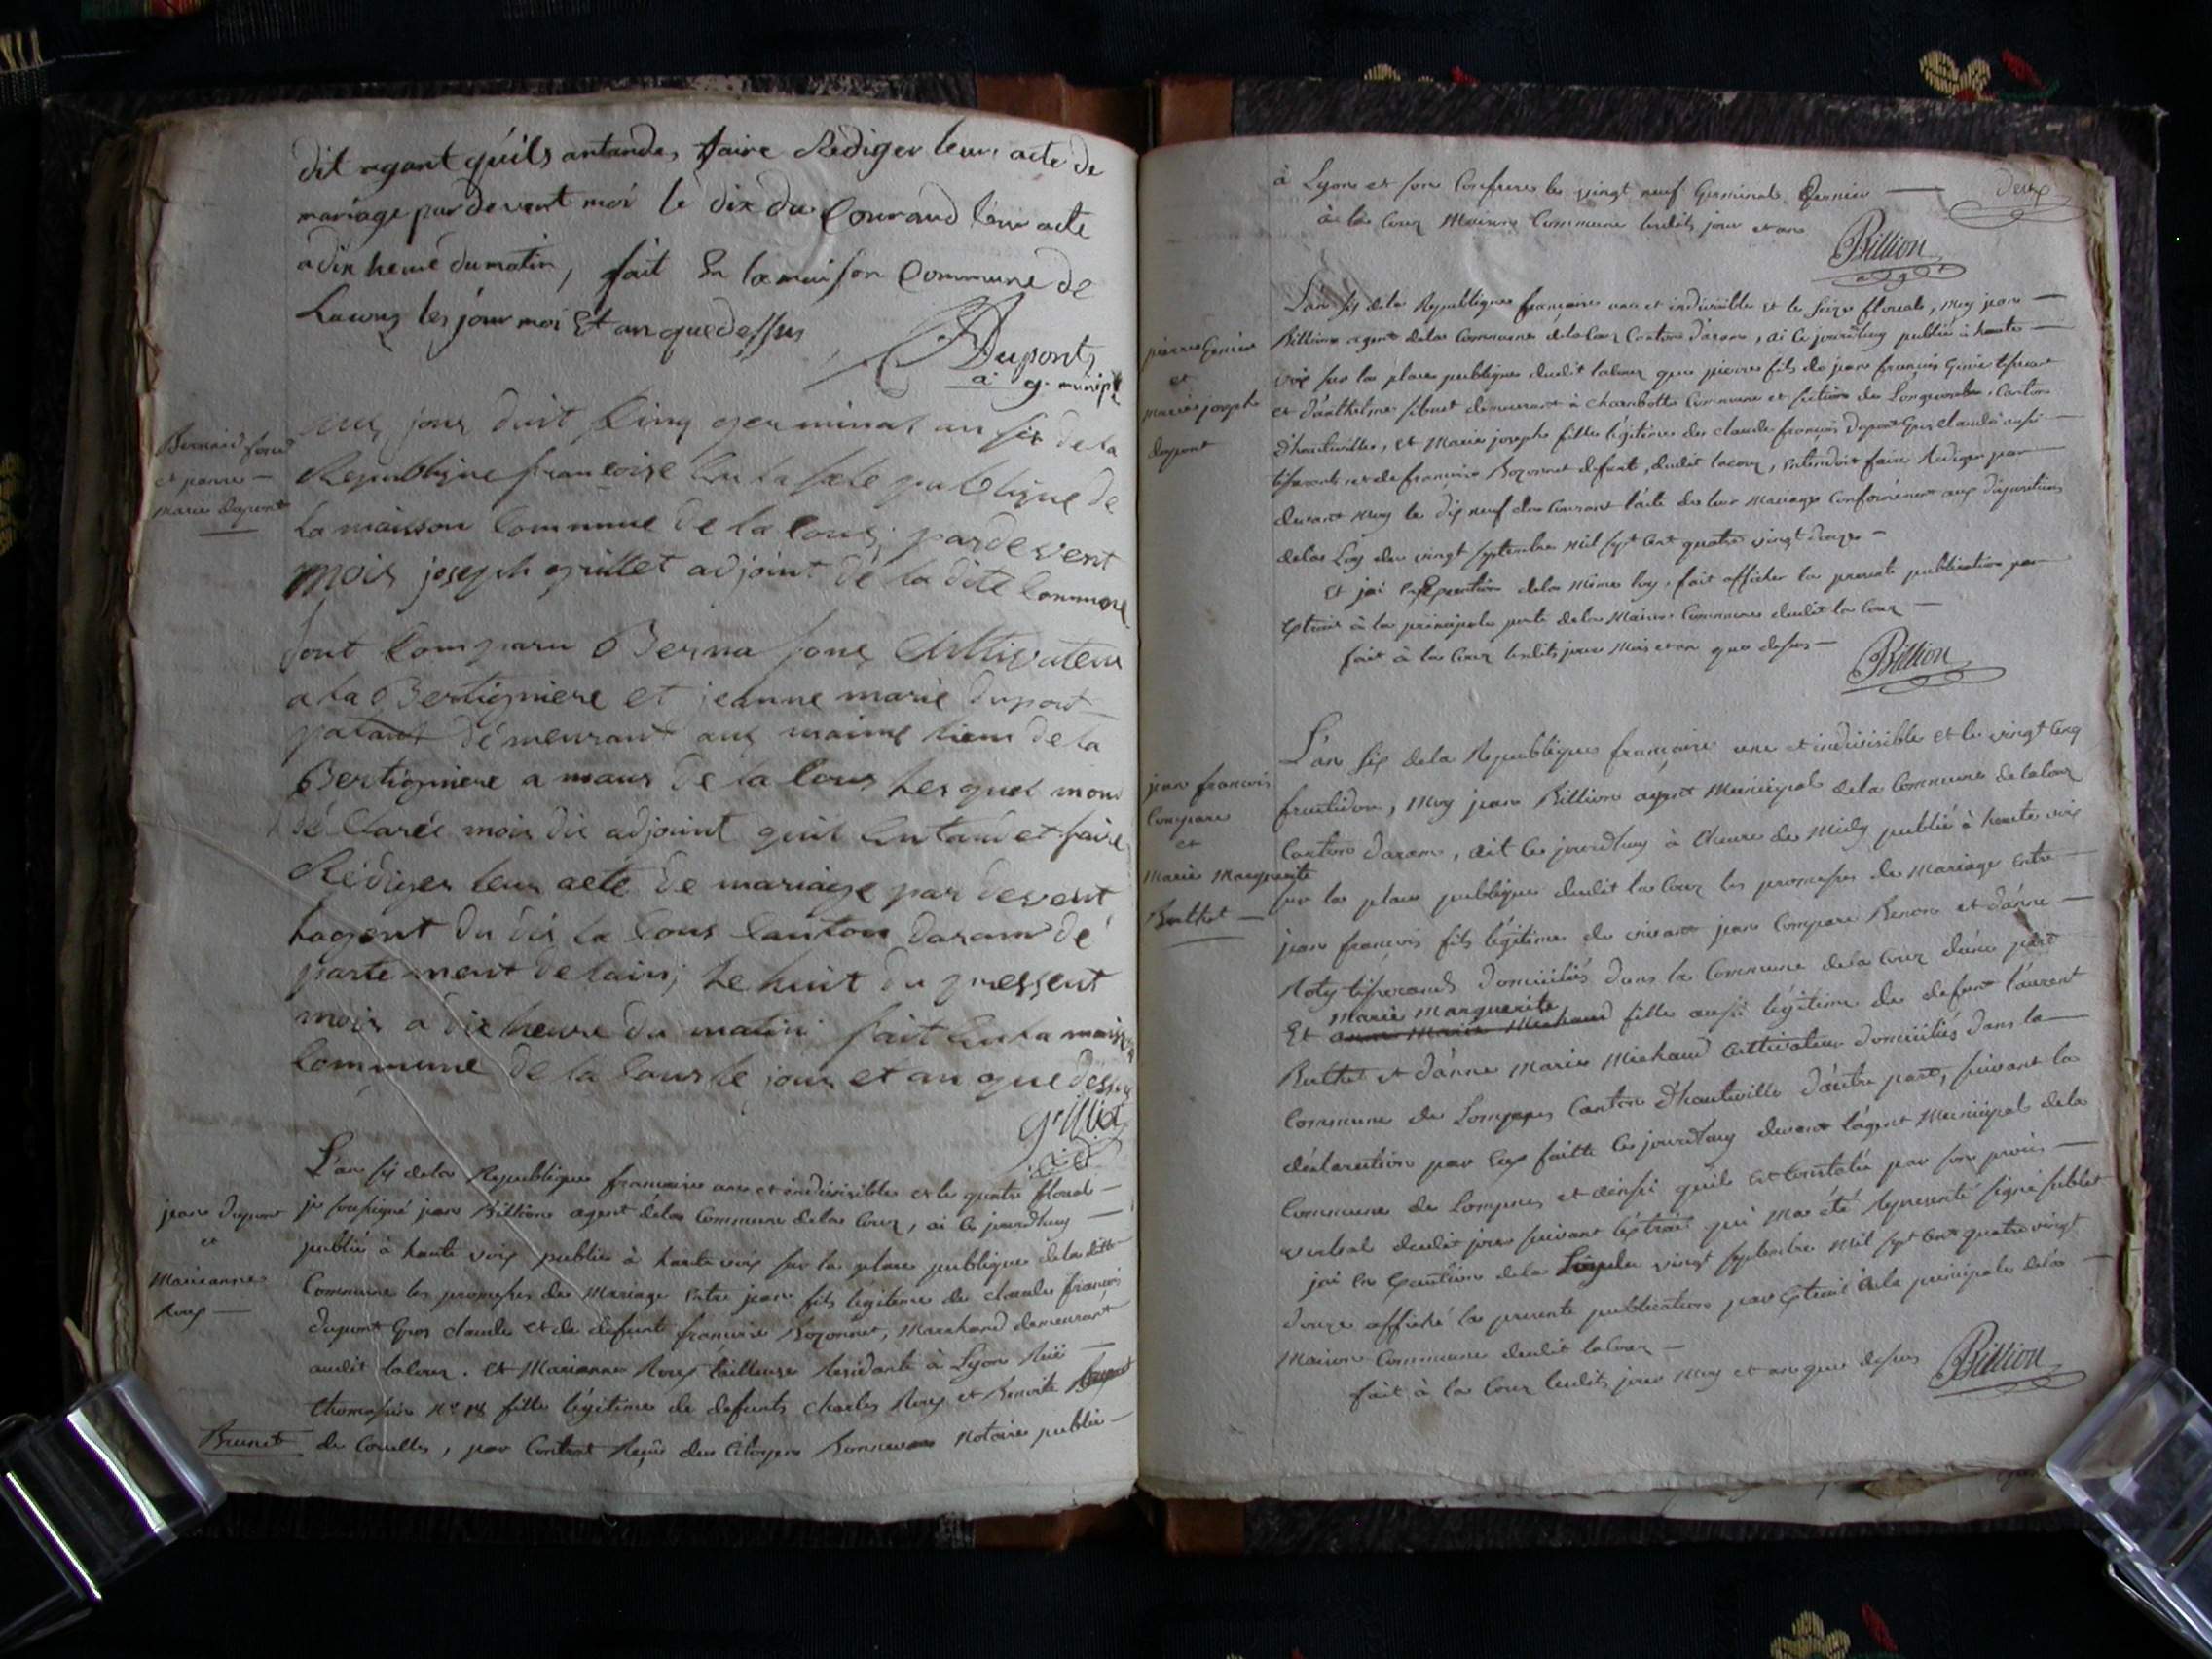 dit agant qu'ils antandes faire Rediger leur acte de
mariage pardevent moi le dix du Courand l'eur acte
a dix heure du matin, fait En la maison Commune de
Lacouz les jour moi Et an que dessus
Dupont
a. g. munipl
jour duit Cinq germinal an six de la
Republique francoise En la sale publique de
La maison Commune de la Couz, pardevent
mois joseph grilliet adjoint de la dite Commune
Sont Comparu Berna fone Cultivateur
a la Bertigniere et jeanne marie dupont
demeurant aux maime lieux de la
Bertigniere a maus de la Cous Les quel mon
dé Claréé mois dit adjoint quil Entandet faire
Rédiger leur acte de mariage par devent
Lagent du dis la Cous Canton daram dé
partement de lain; Le huit du pressent
mois a dix heure du matin fait En la maison
Commune de la Cous le jour et an que dessus
grilliet
adj
Bernard fone
et janne
marie dupont
L'an six dela Republique francaise une et indivisible et le quatre floreal
je soussigné jean Billion agent dela Commune dela Couz, ai ce jourd'huy
publié à haute voix publié à haute voix sur la place publique de la ditte
Commune les promesses de Mariage entre jean fils légitime de claude françois
dupont Gros claude et de defunte françoise Bozonnet, Marchand demeurant
audit lalouz. et Marianne Roux tailleuse Residante à Lyon Rüe
thomassin No 18 fille légitime de defunts Charles Roux et Benoite
Brunet de Couelles, par Contrat Reçu du Citoyen Bonnevaux Notaire public
jean dupont
et
Marianne
Roux
à Lyon et son Confrere le vingt neuf Germinal dernier
deux
à la Couz Maison Commune lesdits jour et an
Billion
agt
L'an six dela Republique française une et indivisible et le seize floreal, Moy jean
Billion agent dela Commune delalouz Canton daram, ai ce jourd'huy publié à haute
voix sur la place publique dudit lalouz que pierre fils de jean françois Genier tisserant
et d'anthelme sibuet demeurant à charabotte Commune et section de Longecombe, Canton
d'hauteville, et Marie josephe fille légitime de claude françois Dupont Gros claude aussi
tisserant et de françoise Bozonnet defunt, dudit lacouz, entendoit faire Rediger par
devant Moy le dix neuf du Courant l'acte de leur Mariage Conformément aux dispositions
dela Loy du vingt septembre Mil sept Cent quatre vingt douze
Et jai en Execution dela même loy, fait afficher la presente publication par
Extrait à la principale porte dela Maison Commune dudit la Couz
fait à la Couz lesdits jour Mois et an que dessus
Billion
pierre Genier
et
marie josephe
dupont
L'an six dela Republique française une et indivisible et le vingt Cinq
fructidor, Moy jean Billion agent Municipal dela Commune delalouz
Canton daram, ait ce jourd'huy à l'heure de Midy publié à haute voix
sur la place publique dudit la Couz les promesses de Mariage entre
jean françois fils légitime de vivant jean Compare Benon et d'anne
Noty tisserands domiciliés dans la Commune dela Couz d'une part
Marie Marguerite
Et anne Marie Michaud fille aussi légitime de defunt laurent
Berthet et d'anne Marie Michaud Cultivateur domiciliés dans la
Commune de Lompnes Canton d'hauteville d'autre part, suivant la
déclaration par Eux faitte ce jourd'huy devant l'agent Municipal dela
Commune de Lompnes et ainsi qu'il est Constaté par son procès
verbal dudit jour suivant l'extrait qui m'a été Representé signé sibuet
jai en Execution dela Loy du vingt septembre Mil sept Cent quatre vingt
douze affiché la presente publication par Extrait à la principale dela
Maison Commune dudit lalouz
fait à la Couz lesdits jour Moy et an que dessus
Billion
jean francois
Compare
et
Marie Marguerite
Berthet